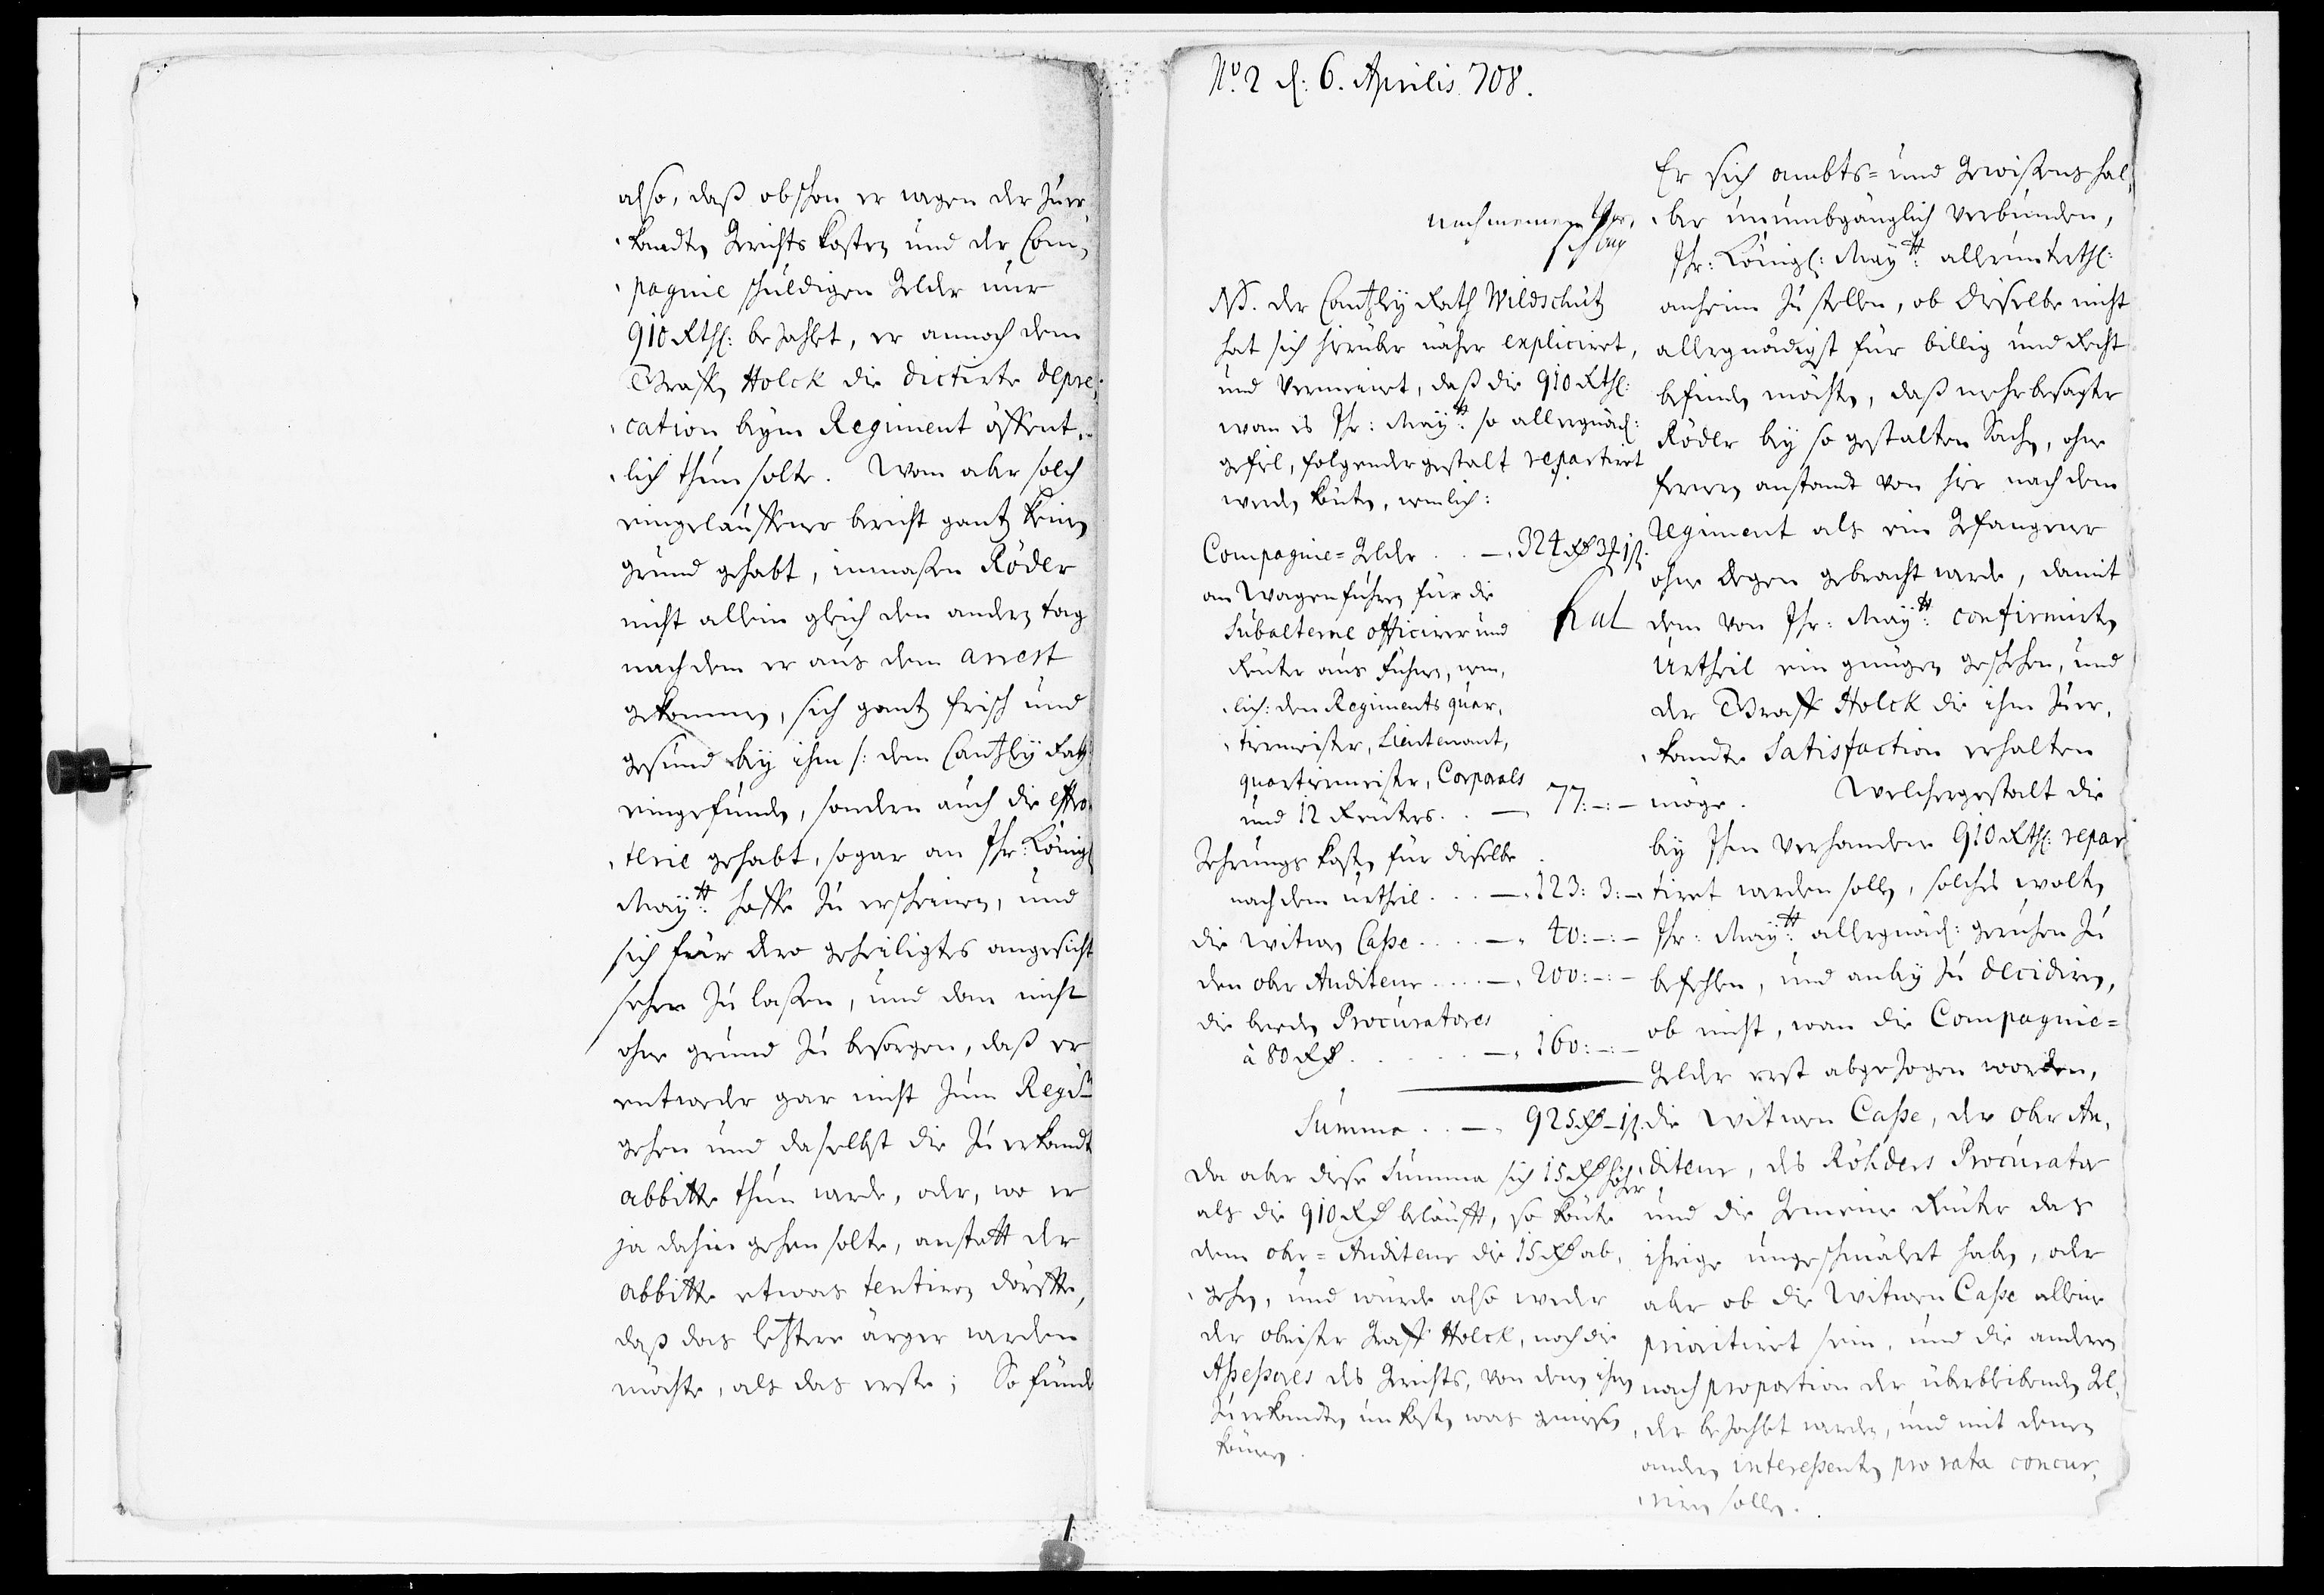 also, daß obschon er wegen der zuer,
kandten Gerichts kosten und der Com,
pagnie schuldigen Gelder nur
910 Rthl: bezahlt, er annoch dem
Graffen Holck die dictirte depre,
cation beym Regiment öffent,
lich thun solte. Wan aber solch
eingelauffener bericht gantz keinen
grund gehabt, inmaßen Röder
nicht allein gleich den andern tag
nachdem er aus dem arrest
gekommen, sich gantz frisch und
gesund bey ihm /: dem Cantzley Rath
eingefunden, sondern auch die effron
terie gehabt, sogar an Ihr: Königl
Maytt: hoffe zu erscheinen, und
sich für dero geheiligtes angesicht
sehen zu laßen, und dan nicht
ohne grund zu besorgen, daß er
entweder gar nicht zum Regimt
gehen und daselbst die zuerkandte
abbitte thun werde, oder, wo er
ja dahin gehen solte, anstatt der
abbitte etwas tentiren dörffte,
daß das letztere ärger werden
möchte, als das erste; So finde
No. 2 d: 6. Aprilis 708.
nach meinem Vor,
schlag
NB. der Cantzley Rath Wildschütz
hat sich hierüber näher expliciret,
und vermeinet, daß die 910 Rthl:
wan es Ihr: Maytt: so allergnäd:
gefiel, folgender gestalt repartiret
werden könten, nemlich:
Compagnie=Gelder . . — 324 Rd 3 1ß.
an Wagenfuhren für die
Subalterne officirer und
Reuter aus Fühnen, nem,
lich: den Regiments quar,
tiermeister, Lieutenant,
quartiermeister, Corporals
und 12 Reuters . . — 77:–:–
Zehrungs kosten für dieselbe
nach dem urtheil . . . — 123: 3:–
die witwen Casse . . . . — 40:–:–
den ober Auditeur . . . . — 200:–:–
die beeden Procuratores
à 80 Rd . . . . . . — 160:–:–
Summa . . — 925 Rd – 1ß.
Da aber diese Summa sich 15 Rd höher
als die 910 Rd beläufft, so könte
dem ober=Auditeur die 15 Rd ab,
gehen, und würde also weder
der obrister Graff Holck, noch die
Assessores des Gerichts, von denen ihnen
zuerkandten unkosten was genießen
können.
hat
Er sich ambts= und Gewißens hal,
ber unumbgänglich verbunden,
Ihr: Königl: Maytt: allerunterthl:
anheim zu stellen, ob dieselbe nicht
allergnädigst für billig und Recht
befinden möchten, daß mehrbesagter
Röder bey so gestalten Sachen, ohne
fernern anstandt von hier nach dem
Regiment als ein Gefangener
ohne degen gebracht werde, damit
dem von Ihr: Maytt: confirmirten
Urtheil ein gnügen geschehen, und
der Graff Holck die ihm zuer,
kandte Satisfaction erhalten
möge. Welchergestalt die
bey Ihm verhandene 910 Rthl: repar
tiret werden sollen, solches wolten
Ihr: Maytt: allergnäd: geruhen zu
befehlen, und anbey zu decidiren,
ob nicht, wan die Compagnie=
Gelder erst abgezogen worden,
die witwen Casse, der ober Au,
diteur, des Röhders Procurator
und die Gemeine Reuter das
ihrige ungeschmälert haben, oder
aber ob die witwen Casse allein
prioritiret sein, und die andern
nach proportion der überbleibenden Gel,
der bezahlet werden, und mit denen
andern interessenten pro rata concur,
riren sollen.